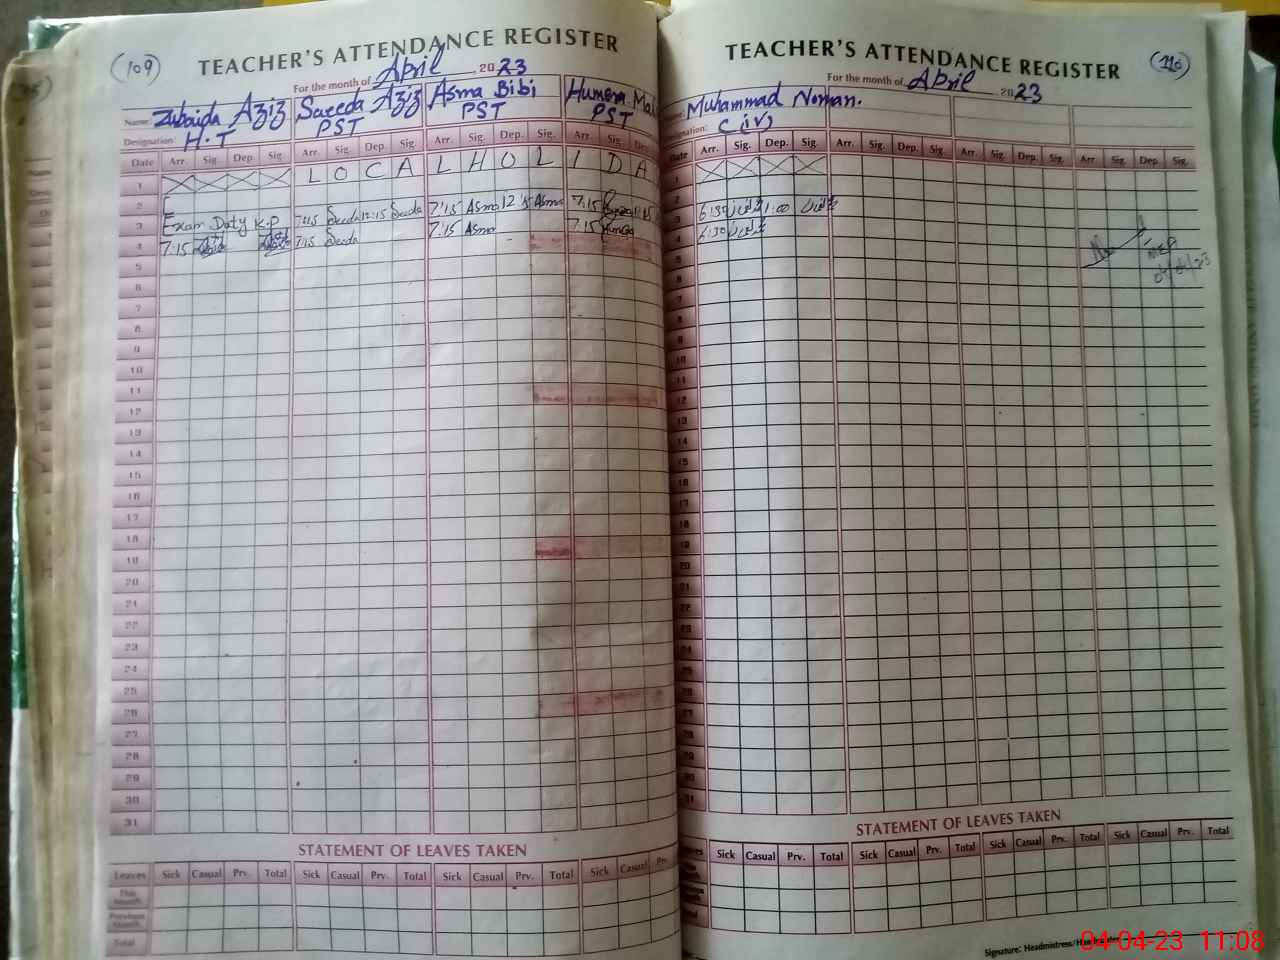 (109)
TEACHER'S ATTENDANCE REGISTER
For the month of April 2023
Name: Zubaida Aziz Saeeda Aziz Asma Bibi Humera
Designation: H.T PST PST PST
Date Arr. Sig. Dep. Sig. Arr. Sig. Dep. Sig. Arr. Sig. Dep. Sig. Arr. Sig. Dep.
1 L O C A L H O L I D A
2
3 Exam Duty K.P 7:15 Saeeda 12:15 Saeeda 7:15 Asma 12:15 Asma 7:15
4 7:15 7:15 Saeeda 7:15 Asma 7:15
5
6
7
8
9
10
11
12
13
14
15
16
17
18
19
20
21
22
23
24
25
26
27
28
29
30
31
STATEMENT OF LEAVES TAKEN
Leaves Sick Casual Prv. Total Sick Casual Prv. Total Sick Casual Prv. Total Sick Casual Prv.
This Month
Previous Month
Total
(110)
TEACHER'S ATTENDANCE REGISTER
For the month of April 2023
Muhammad Noman.
Designation: C (iv)
Date Arr. Sig. Dep. Sig. Arr. Sig. Dep. Sig. Arr. Sig. Dep. Sig. Arr. Sig. Dep. Sig.
1
2
3 6:30 1:00
4 6:30
5 MEA
6 04/04/23
7
8
9
10
11
12
13
14
15
16
17
18
19
20
21
22
23
24
25
26
27
28
29
30
31
STATEMENT OF LEAVES TAKEN
Sick Casual Prv. Total Sick Casual Prv. Total Sick Casual Prv. Total Sick Casual Prv. Total
Signature: Headmistress/
04-04-23 11:08